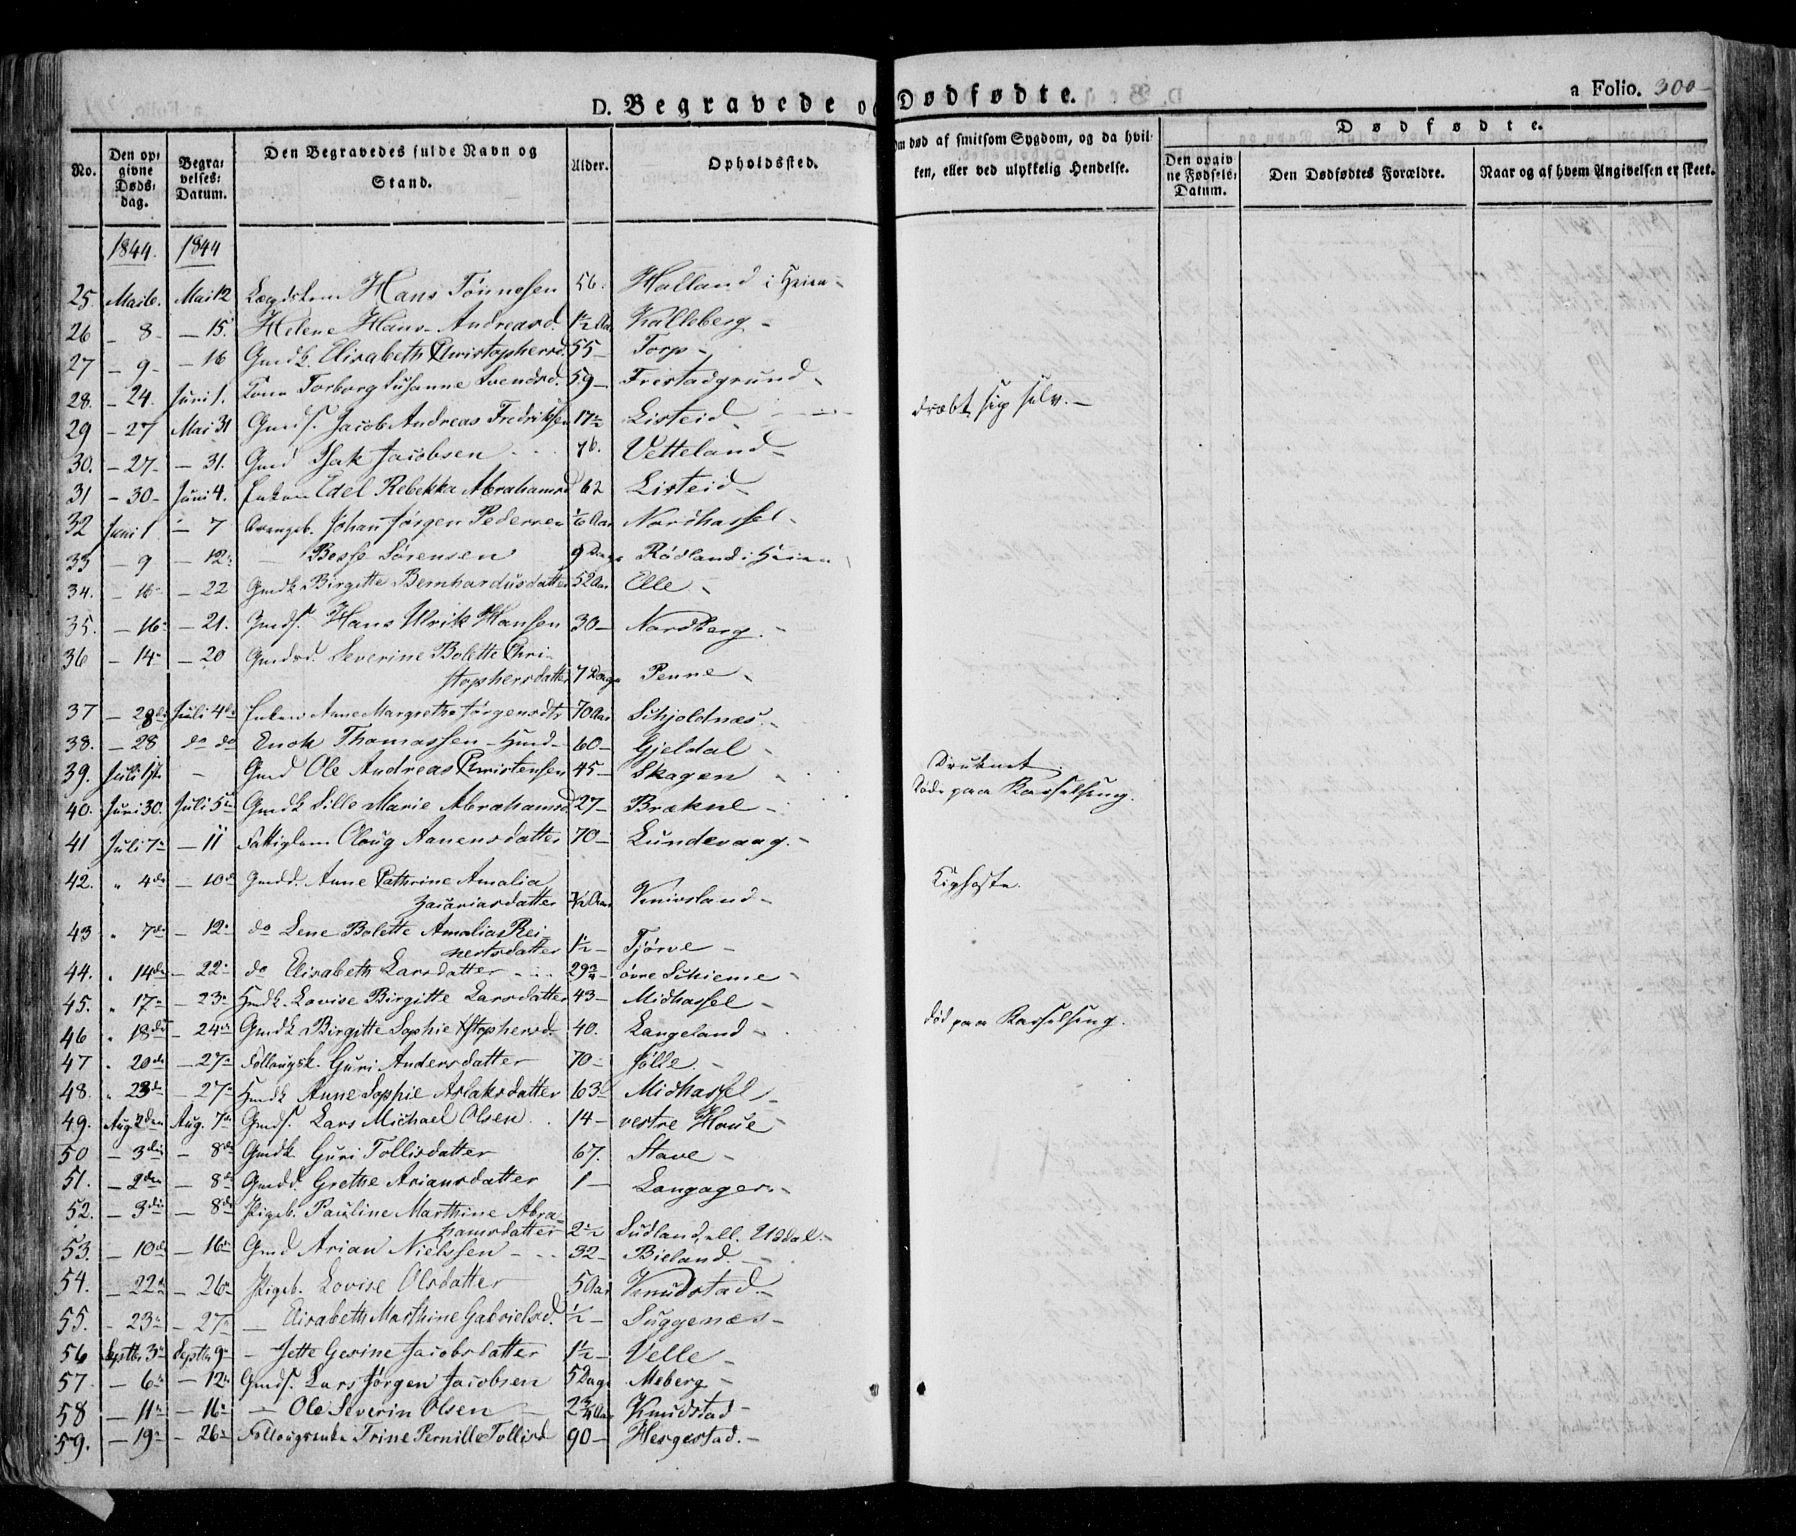 D. Begravede og Dødfødte.
a Folio. 300
No. | Den opgivne Dødsdag. | Begravelses-Datum. | Den Begravedes fulde Navn og Stand. | Alder. | Opholdssted. | Om død af smitsom Sygdom, og da hvilken, eller ved ulykkelig Hendelse.
Dødfødte.
Den opgivne Fødsels-Datum. | Den Dødfødtes Forældre. | Naar og af hvem Angivelsen er skeet.
1844. 1844
25. Mai 6. Mai 12 Lægdslem Hans Tönnesen 56. Halland i Heien
26 – 8 – 15. Helene Hans-Andreasd. 1½ Aar Kalleberg –
27 – 9 – 16 Gmdk Elisabeth Christophersd. 55 – Torp –
28. – 24. Juni 1. Kone Torborg Susanne Svendsd. 59 – Fristadgrund
29 – 27 Mai 31 Gmds. Jacob Andreas Fredriksen 17½ Listeid – dræbt sig selv. –
30. – 27 – – 31. Gmd Isak Jacobsen 76. Vetteland –
31 – 30 – Juni 4. Enken Edel Rebekka Abrahamsd 62 Listeid
32 Juni 1 – 7 Johan Jörgen Pedersen Nordhassel
33 – 9 – 12 – Besse Sörensen 9 Dage Rödland i Heien
34. – 16 – 22 Gmdk Birgitte Bernhardusdatter 52 Aar Elle
35. – 16 – 21. Gmds. Hans Ulrik Hansen 30 – Nordberg. –
36 – 14 – 20 Gmdsd. Severine Bolette Chri-
stophersdatter 7 Dage Penne
37 – 28de Juli 4de Enken Anne Margrethe Jörgensdtr 70 Aar Schjoldnæs.
38. – 28 do do Enok Thomassen – Hmd – 60 – Gjeldal
39. Juli 1st – Gmd Ole Andreas Christensen 45 – Skagen – Druknet
40. Juni 30. Juli 5te Gmdk Sille Marie Abrahamsd 27 – Brækne – Döde paa Barselseng.
41 Juli 7 – 11 Fattiglem Olaug Aanensdatter 70 – Lundevaag. –
42. " 4de – 10de Gmdd. Anne Cathrine Amalia
Zacariasdatter Knivsland – Kighoste.
43 " 7de – 12 do Lene Bolette Amalia Rei-
nertsdatter 1½ – Tjörve –
44. " 14de – 22 do Elisabeth Larsdatter 29¾ – övre Schieme –
45. " 17 – 23 Hmdk. Lovise Birgitte Larsdatter 43 – Midhassel –
46 " 18de – 24 Gmdk Birgitte Sophie Chstophersd. 40. Langeland – död paa Barselseng.
47 " 20de – 27 Follaugsk. Guri Andersdatter 70 – Jölle. –
48. " 23de – 27 Hmdk Anne Sophie Aslaksdatter 63 Midhassel –
49. Aug 2den Aug. 7 Gmds. Lars Michael Olsen 14 – vestre Haue –
50 – 3die – 8de Gmdk Guri Tollisdatter 67. Stave –
51. – 2den – 8de Gmdd Grethe Ariansdatter 1 – Langager. –
52. – 3die – 8de Pligeb. Pauline Marthine Abra-
hamsdatter 2½ Sudland, ell. Uddal. –
53. – 10de – 16 Gmd Arian Nielssen 32 – Bieland –
54. – 22 – 26 Pligeb. Lovise Olsdatter 5 Aar Knudstad –
55. – 23 – 27 – Elisabeth Marthine Gabrielsd. ½ – Suggenæs –
56 Septbr 3 Septbr 9 – Jette Gesine Jacobsdatter 1½ – Velle –
57. – 6 – 12 Gmds. Lars Jörgen Jacobsen 5 Dage Meberg –
58 – 11 – 16 – Ole Severin Olsen – 2¾ Aar Knudstad –
59. – 19 – 26 Follaugsenke Trine Pernille Tollisd 90 – Hergestad. –